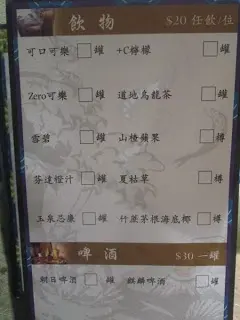 飲物 $20 任飲/位
可口可樂 罐 +C檸檬 罐
Zero可樂 罐 道地烏龍茶 罐
雪碧 罐 山楂蘋果 樽
芬達橙汁 罐 夏枯草 樽
玉泉忌廉 罐 竹蔗茅根海底椰 樽
啤酒 $30 一罐
朝日啤酒 罐 麒麟啤酒 罐